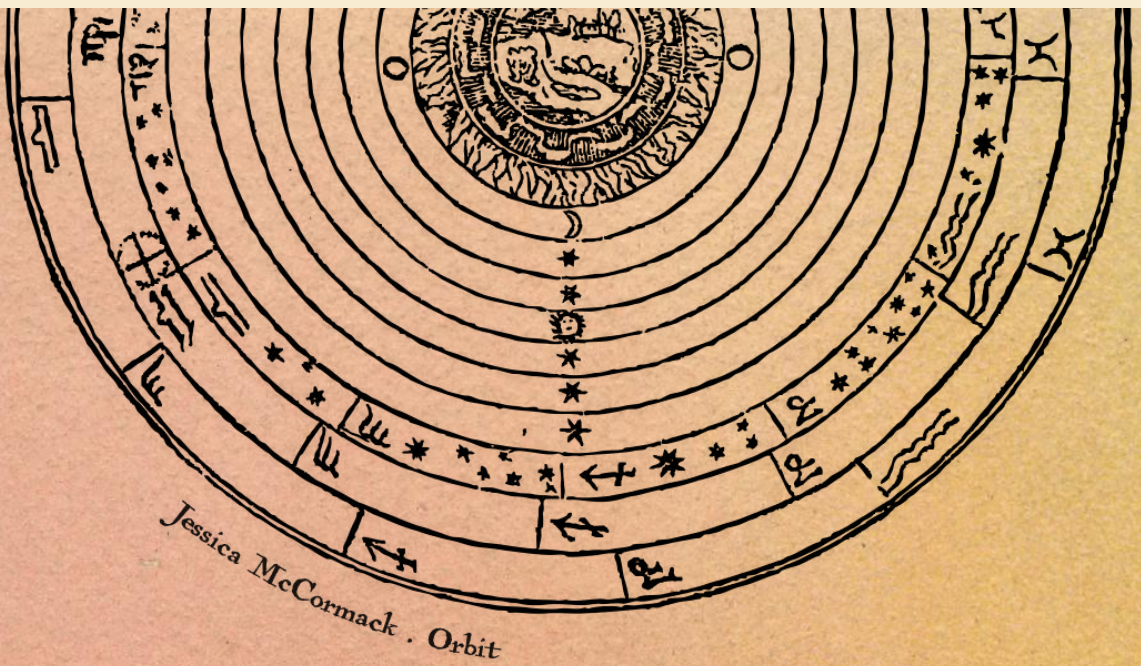 Jessica McCormack . Orbit